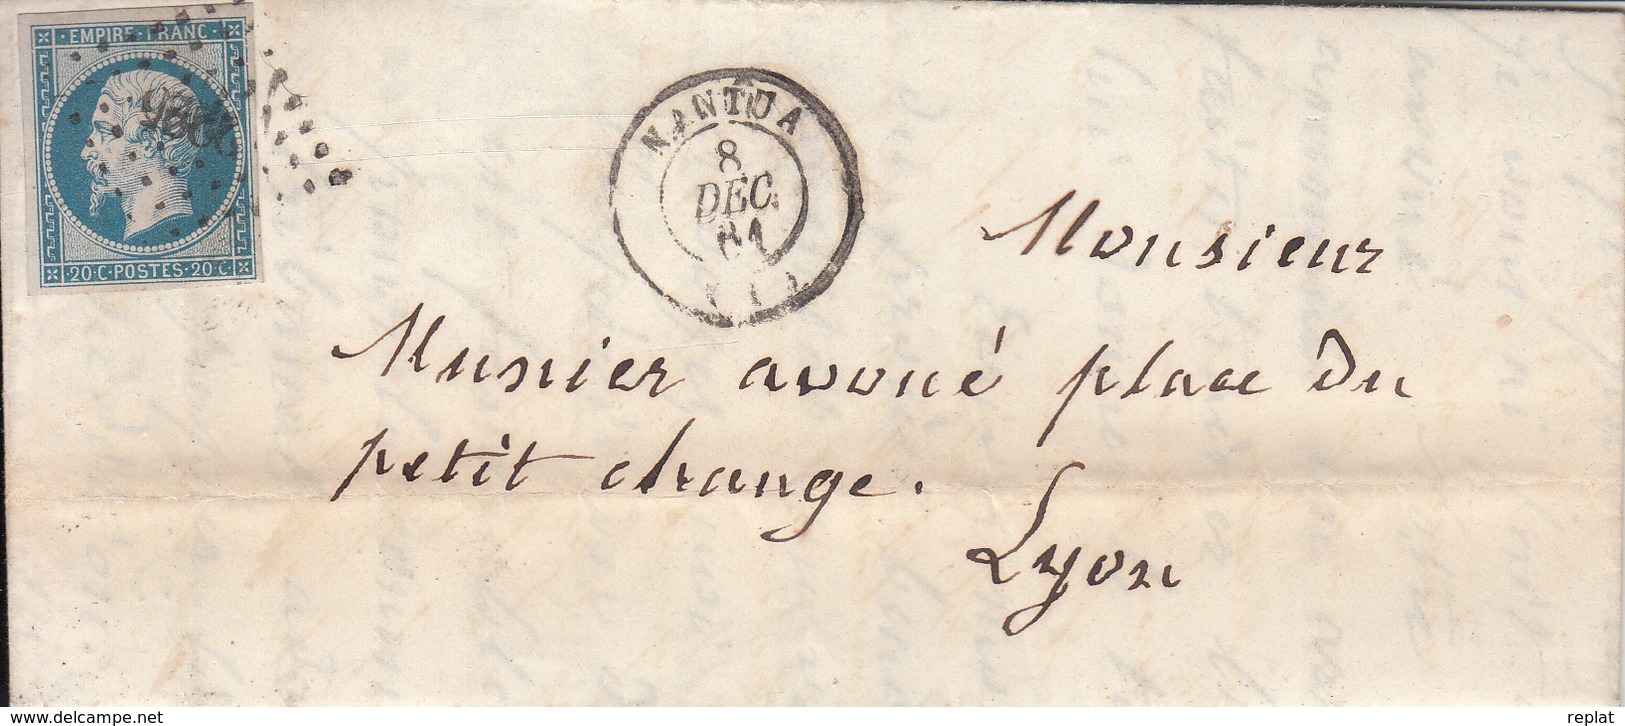 EMPIRE · FRANC ·
20 · C · POSTES · 20 · C ·
NANTUA
8
DÉC.
61
(1)
Monsieur
Munier avoué place du
petit change.
Lyon
www.delcampe.net
replat